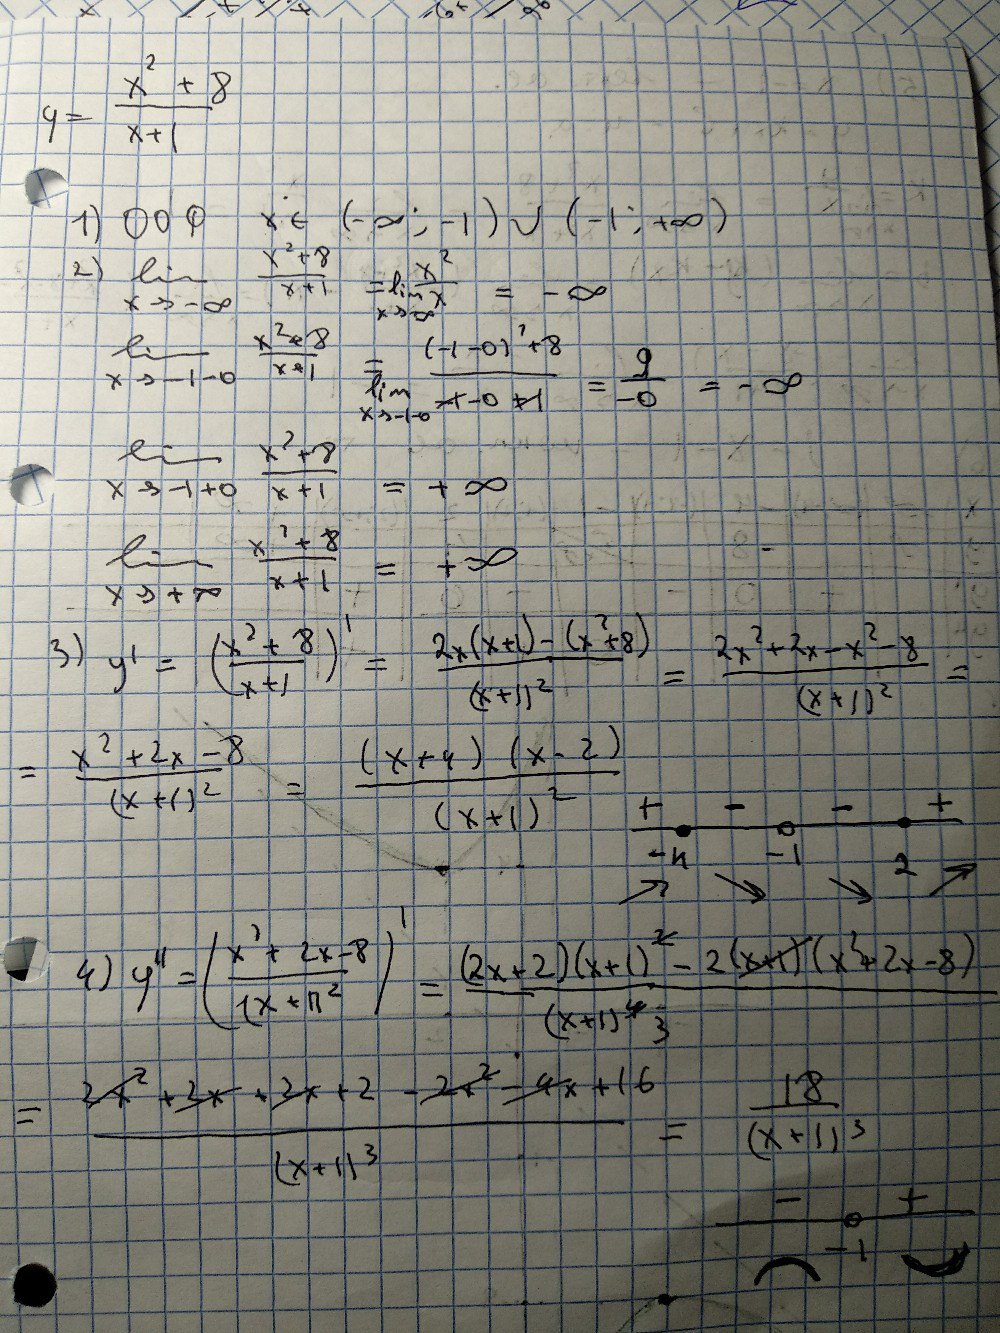 y = (x² + 8)/(x+1)
1) ООФ x ∈ (-∞; -1) ∪ (-1; +∞)
2) lim x→-∞ (x²+8)/(x+1) = lim x→∞ x²/x = -∞
lim x→-1-0 (x²+8)/(x+1) = lim x→-1-0 ((-1-0)²+8)/(-1-0+1) = 9/-0 = -∞
lim x→-1+0 (x²+8)/(x+1) = +∞
lim x→+∞ (x²+8)/(x+1) = +∞
3) y' = ((x²+8)/(x+1))' = (2x(x+1)-(x²+8))/(x+1)² = (2x²+2x-x²-8)/(x+1)² =
= (x²+2x-8)/(x+1)² = ((x+4)(x-2))/(x+1)²
+ - - +
-4 -1 2
4) y'' = ((x²+2x-8)/(x+1)²)' = ((2x+2)(x+1)² - 2(x+1)(x²+2x-8))/(x+1)⁴ 3
= (2x²+2x+2x+2-2x²-4x+16)/(x+1)³ = 18/(x+1)³
- +
-1